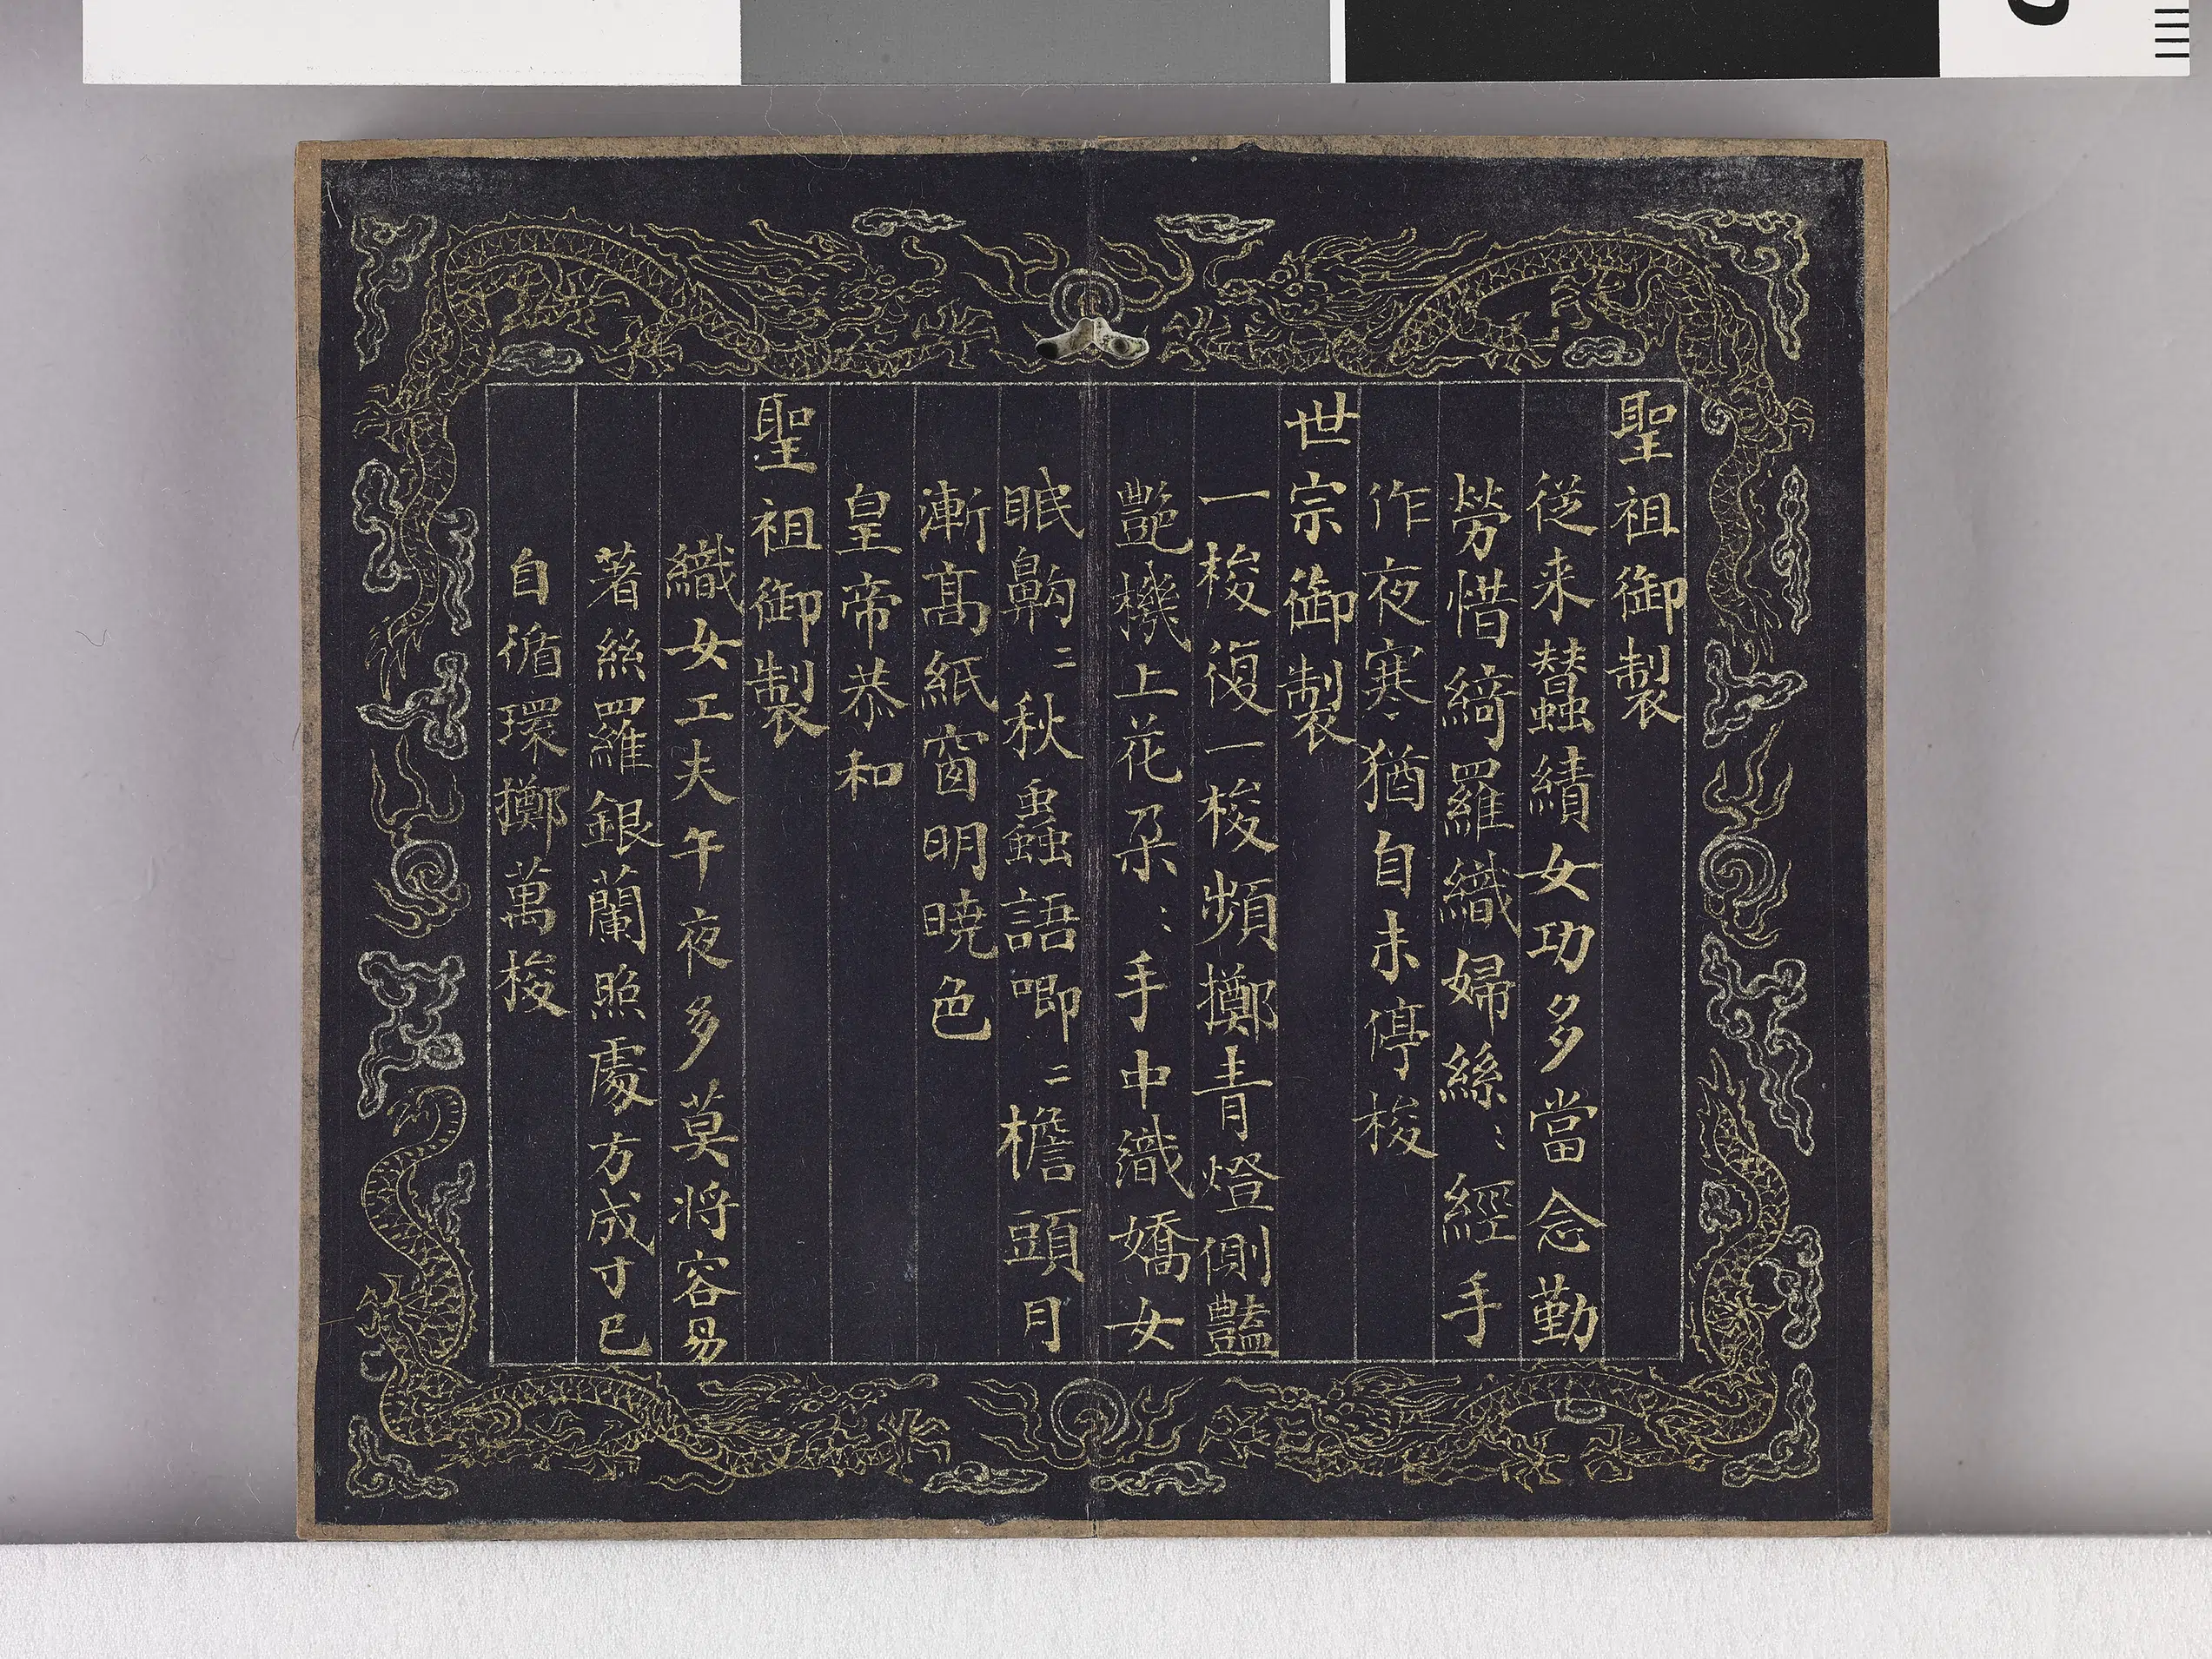 聖祖御製
從来蠶績女功多當念勤
勞惜綺羅織婦絲〻經手
作夜寒猶自未停梭
世宗御製
一梭復一梭頻擲青燈側豔
艷機上花朵〻手中織嬌女
眠齁〻秋蟲語唧〻檐頭月
漸髙紙窗明曉色
皇帝恭和
聖祖御製
織女工夫午夜多莫将容易
著絲羅銀蘭照處方成寸已
自循環擲萬梭